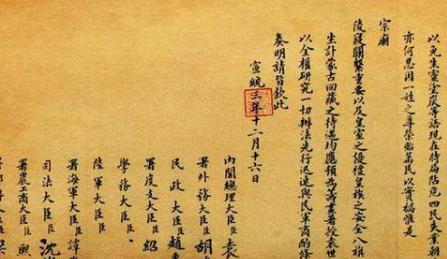 以免生靈塗炭等語現在時局阽危四民失業朝
亦何忍因一姓之尊榮貽萬民以實禍惟是
宗廟
陵寢關繫重要以及皇室之優禮皇族之安全八旗
生計蒙古回藏之待遇均應預為籌畫著授袁世
以全權研究一切辦法先行迅速與民軍商酌條
奏明請旨欽此
宣統三年十二月十六日
內閣總理大臣袁
署外務大臣胡
民政大臣趙
署度支大臣紹
學務大臣
陸軍大臣
署海軍大臣譚
司法大臣沈
署農工商大臣熙